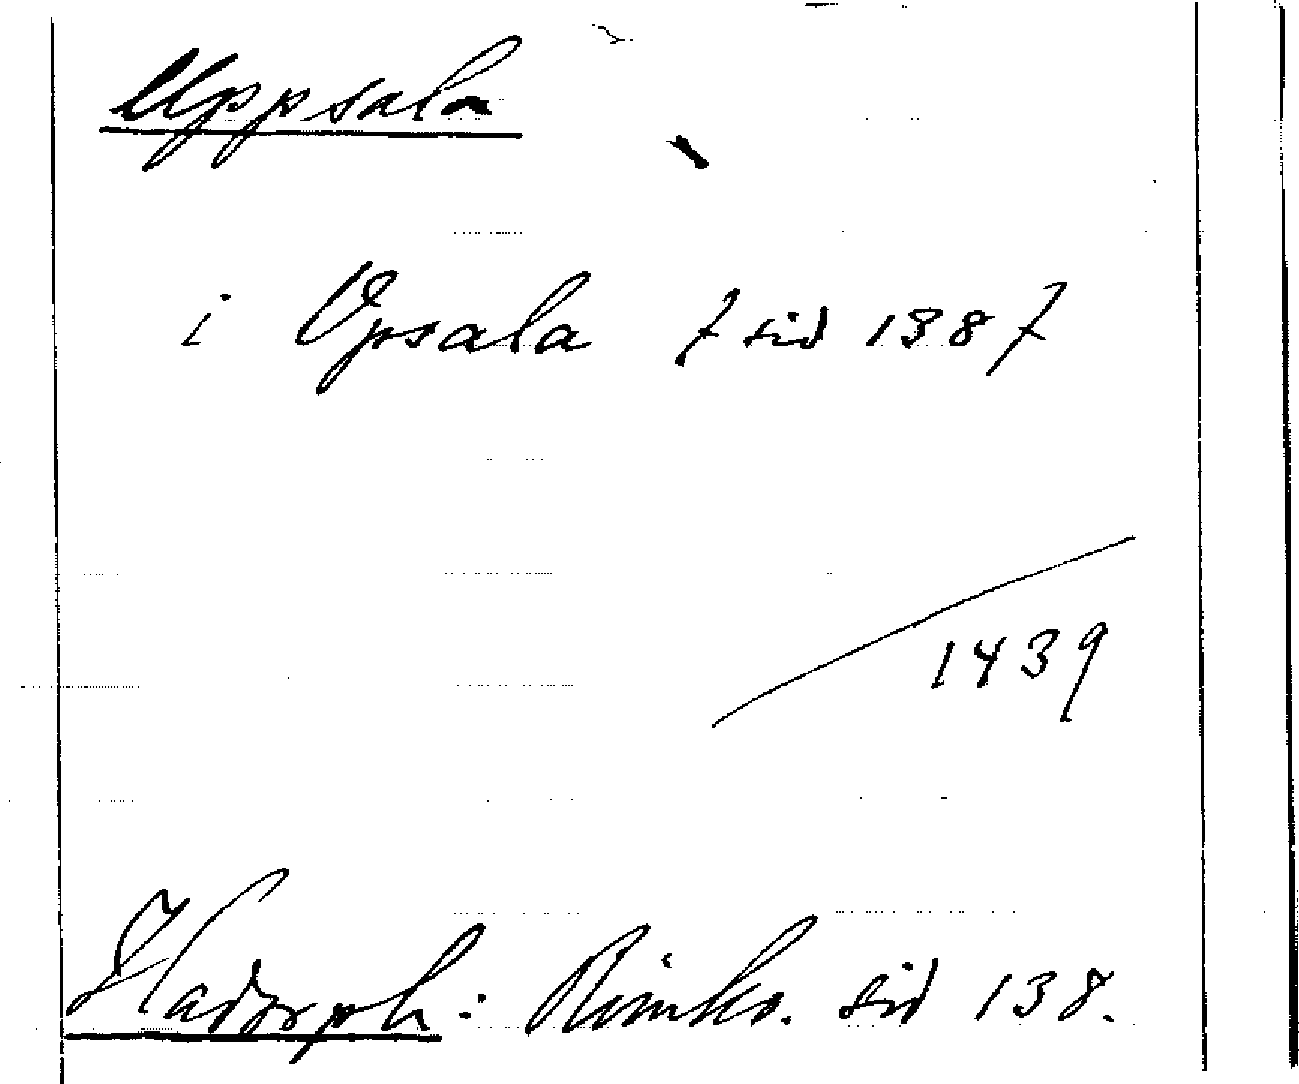 Uppsala
i Upsala [sid 138]
1439
Hadorph: Rimkr. sid 138.